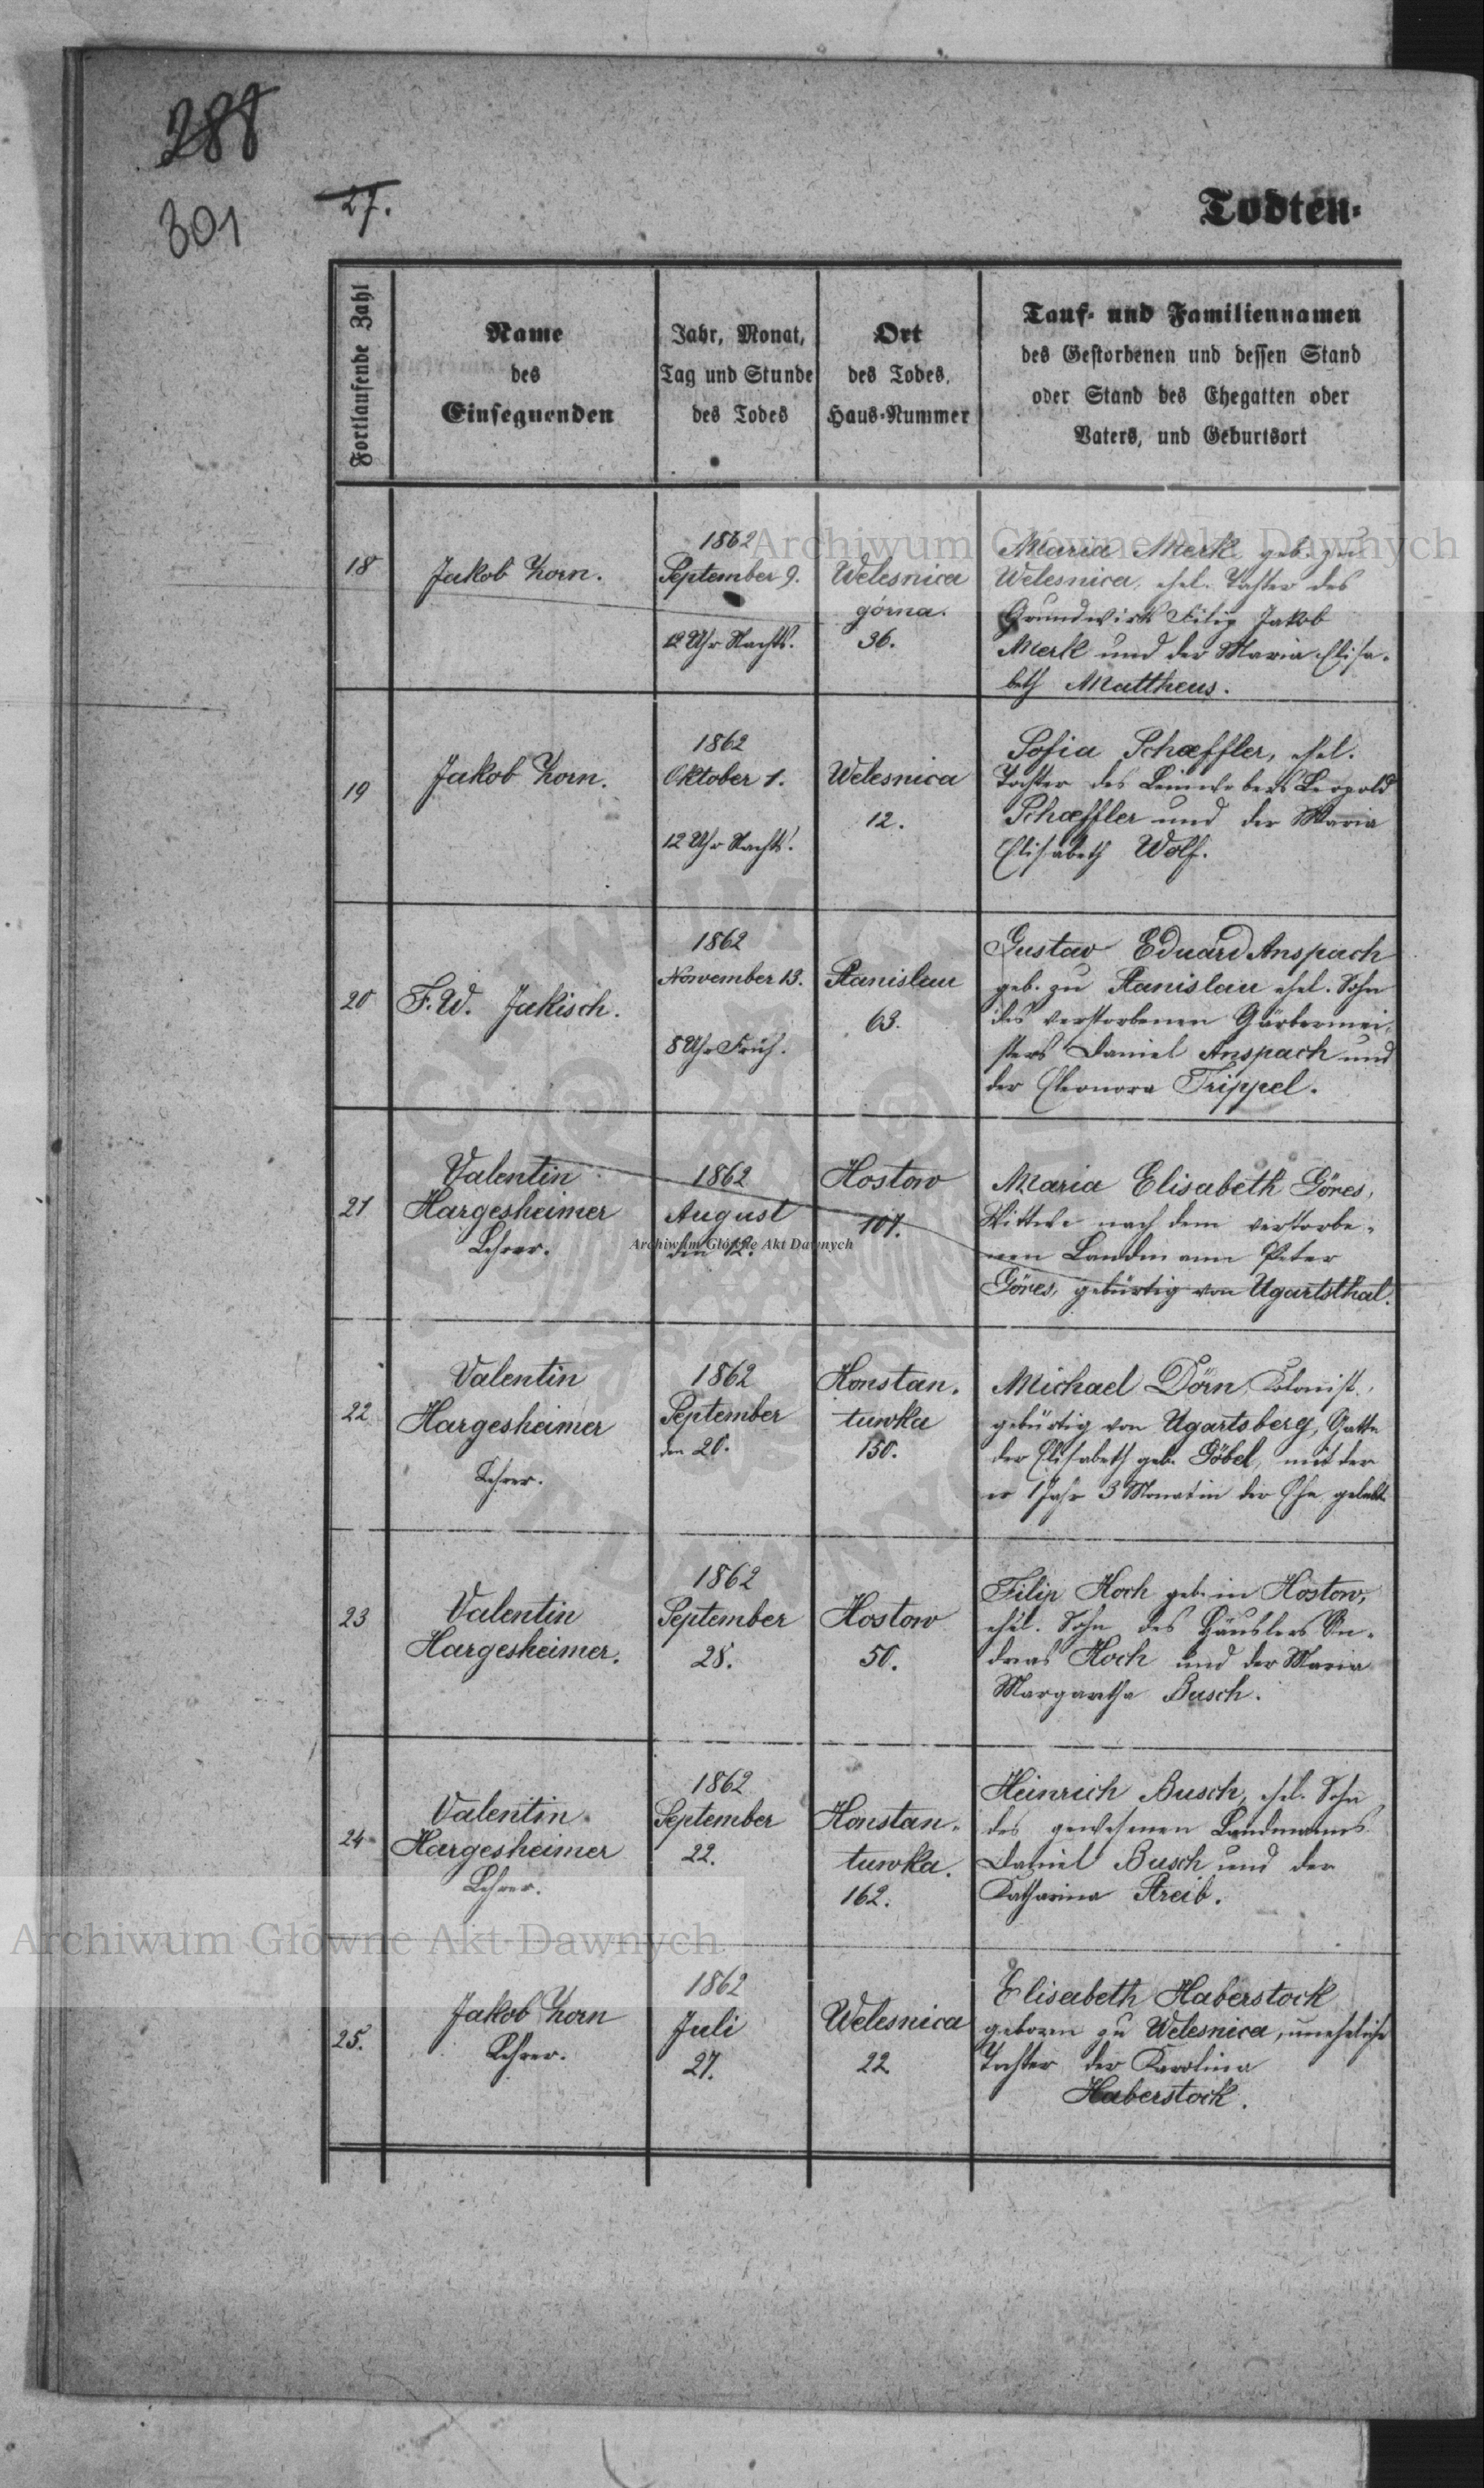 288
301
27.
Todten-
Fortlaufende Zahl
Name
des
Einsegnenden
Jahr, Monat,
Tag und Stunde
des Todes
Ort
des Todes,
Haus-Nummer
Tauf- und Familiennamen
des Gestorbenen und dessen Stand
oder Stand des Ehegatten oder
Vaters, und Geburtsort
18
Jakob Korn.
1862
September 9.
12 Uhr Nachts.
Welesnica
górna.
36.
Maria Merk geb. zu
Welesnica, ehel. Tochter des
Grundwirts Filip Jakob
Merk und der Maria Elisa-
beth Mattheus.
19
Jakob Korn.
1862
Oktober 1.
12 Uhr Nachts.
Welesnica
12.
Sofia Schæffler, ehel.
Tochter des Leinwebers Leopold
Schæffler und der Maria
Elisabeth Wolf.
20
F. W. Jakisch.
1862
November 13.
8 Uhr Früh.
Stanislau
63.
Gustav Eduard Anspach
geb. zu Stanislau ehel. Sohn
des verstorbenen Gärbermei-
sters Daniel Anspach und
der Eleonora Trippel.
21
Valentin
Hargesheimer
Lehrer.
1862
August
den 12.
Hostow
107.
Maria Elisabeth Göres,
Wittwe nach dem verstorbe-
nen Landmann Peter
Göres, gebürtig von Ugartsthal.
22
Valentin
Hargesheimer
Lehrer.
1862
September
den 20.
Konstan-
tuwka
150.
Michael Dörn, Kolonist,
gebürtig von Ugartsberg, Gatte
der Elisabeth geb. Göbel, mit der
er 1 Jahr 3 Monat in der Ehe gelebt.
23
Valentin
Hargesheimer.
1862
September
28.
Hostow
50.
Filip Koch geb. in Hostow,
ehel. Sohn des Häuslers An-
dreas Koch und der Maria
Margaretha Busch.
24
Valentin
Hargesheimer
Lehrer.
1862
September
22.
Konstan-
tuwka.
162.
Heinrich Busch, ehel. Sohn
des gewesenen Landmanns
Daniel Busch und der
Katharina Streib.
25.
Jakob Korn
Lehrer.
1862
Juli
27.
Welesnica
22
Elisabeth Haberstock
geboren zu Welesnica, uneheliche
Tochter der Karolina
Haberstock.
Archiwum Główne Akt Dawnych
Archiwum Główne Akt Dawnych
Archiwum Główne Akt Dawnych